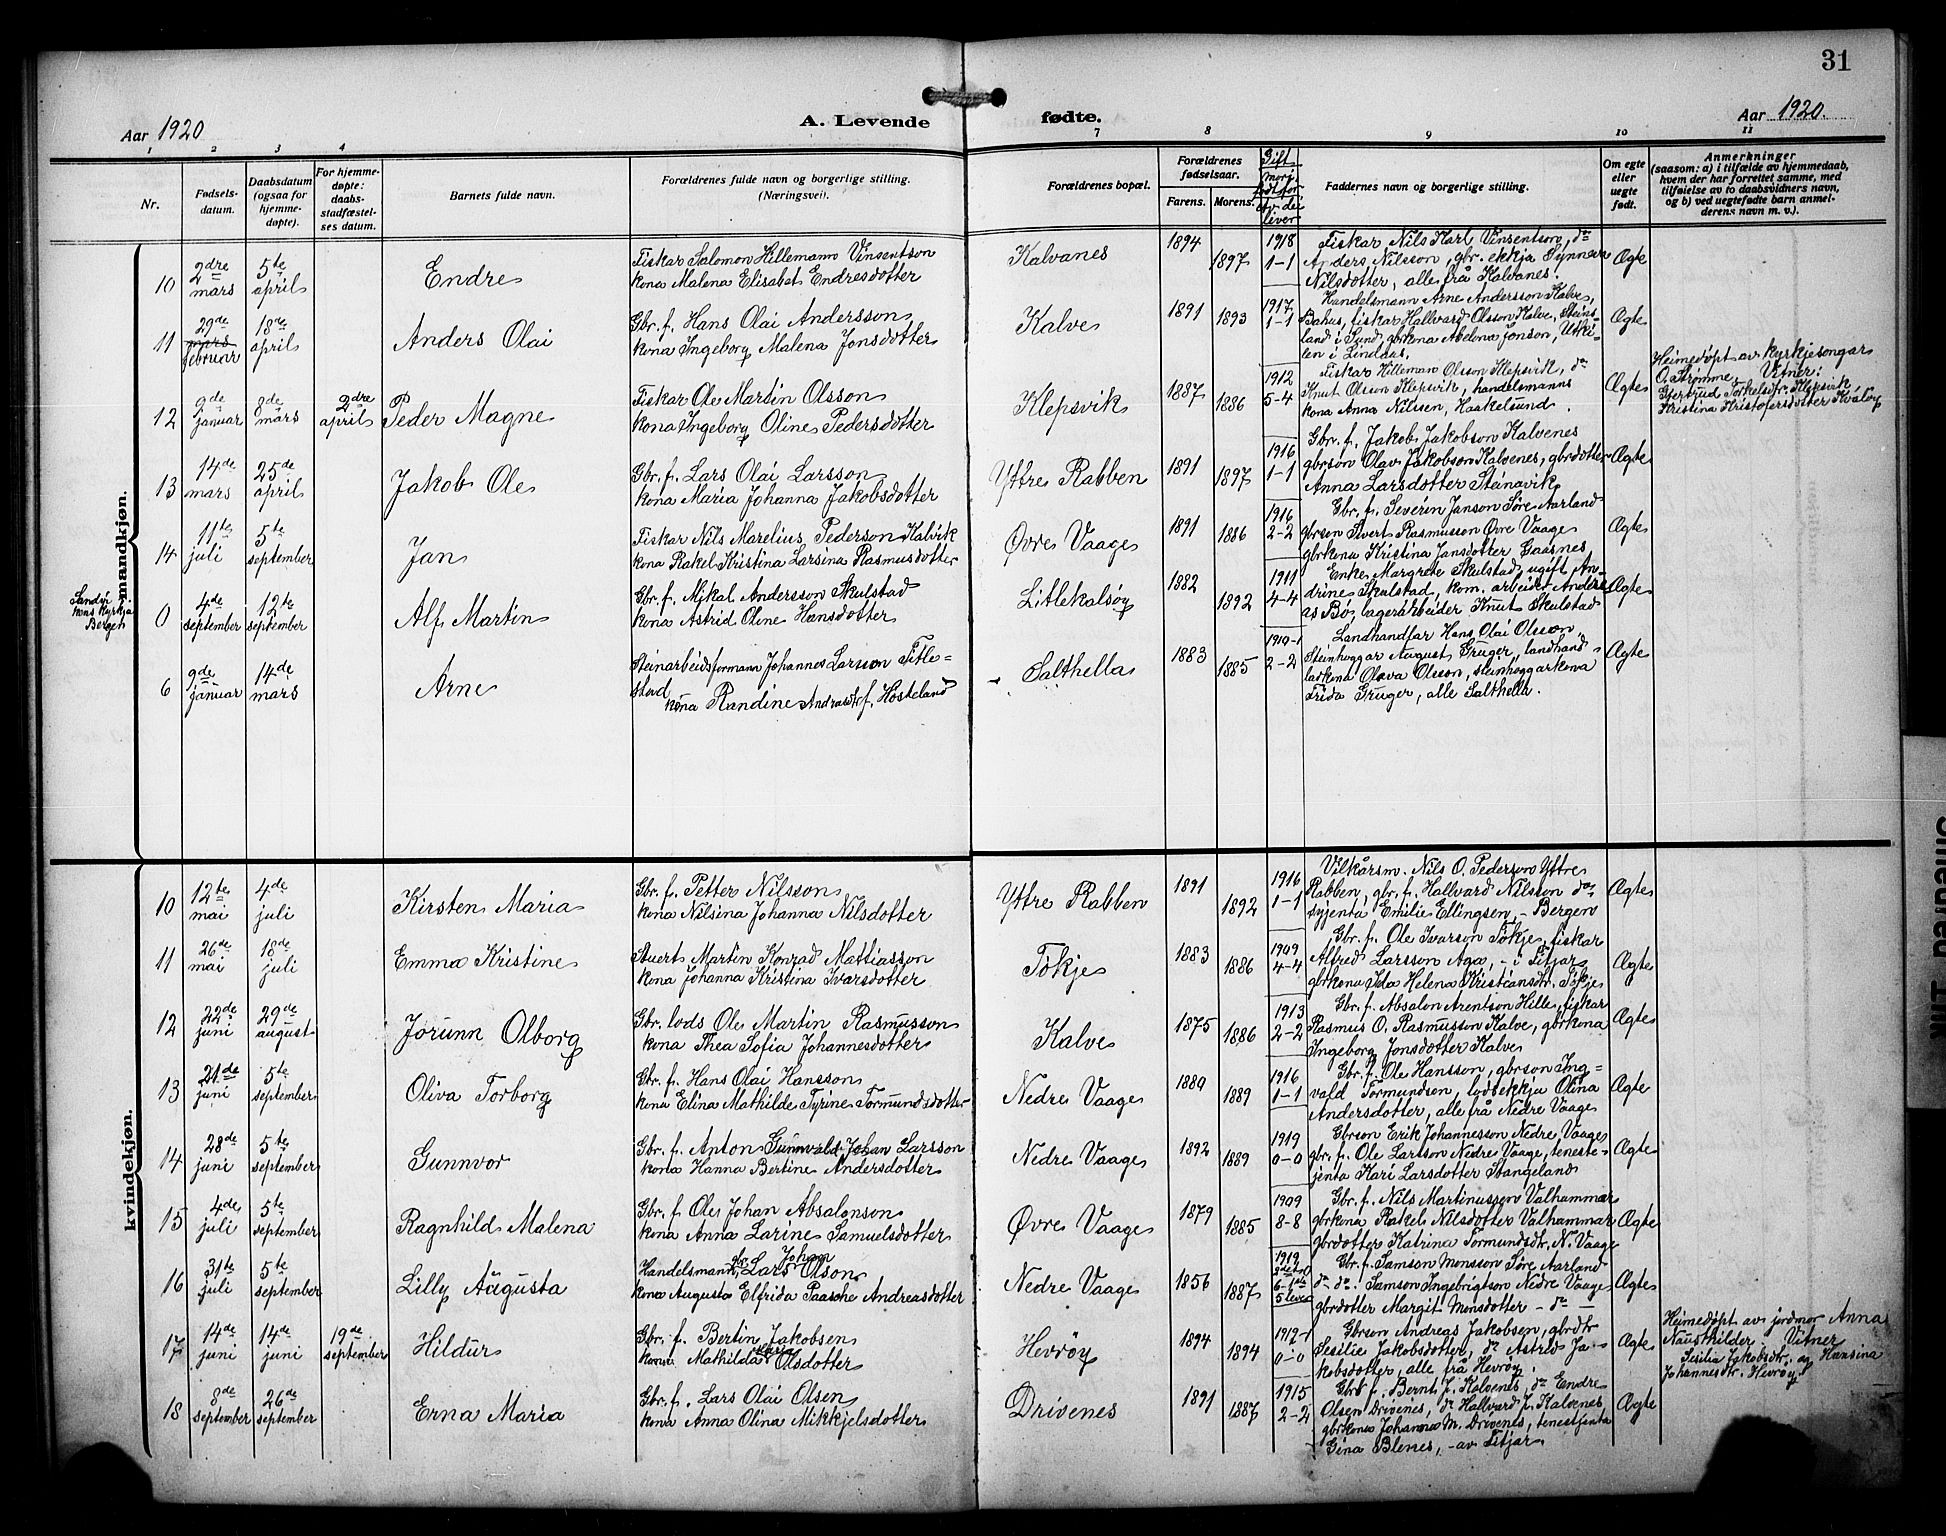 31
Aar 1920
A. Levende
fødte.
Aar 1920.
1 2 3 4 7 8 9 10 11
Nr.
Fødsels-
datum.
Daabsdatum
(ogsaa for
hjemme-
døpte).
For hjemme-
døpte:
daabs-
stadfæstel-
ses datum.
Barnets fulde navn.
Forældrenes fulde navn og borgerlige stilling.
(Næringsvei).
Forældrenes bopæl.
Forældrenes
fødselsaar.
Farens. Morens.
Gift
liver
Faddernes navn og borgerlige stilling.
Om egte
eller
uegte
født.
Anmerkninger
(saasom: a) i tilfælde av hjemmedaab,
hvem der har forrettet samme, med
tilføielse av to daabsvidners navn,
og b) ved uegtefødte barn anmel-
derens navn m. v.).
mandkjøn.
10
2dre
mars
5te
april
Endre
Fiskar Salomon Hillemann Vinsentson
kona Malena Elisabet Endresdotter
Kalvanes
1894
1897
1918
1-1
Fiskar Nils Karl Vinsentson, do
Anders Nilsson, gbr. ekkja Synneve
Nilsdotter, alle frå Kalvanes.
Ægte
11
29de
mars
februar
18de
april
Anders Olai
Gbr. f. Hans Olai Andersson
kona Ingeborg Malena Jonsdotter
Kalve
1891
1893
1917
1-1
Handelsmann Arne Andersson Kalve,
Bakus, fiskar Hallvard Olsson Kalve, Steins-
land i Sund, gbrkona Abelona Jonson, Utki-
len i Lindaas.
Ægte
12
9de
januar
8de
mars
2dre
april
Peder Magne
Fiskar Ole Martin Olsson
kona Ingeborg Oline Pedersdotter
Klepsvik
1887
1886
1912
5-4
Fiskar Hilleman Olsson Klepsvik, do
Knut Olson Klepsvik, handelsmanns
kona Anna Nilssen, Haakelsund.
Ægte
Heimedøpt av kyrkjesongar
O. Strømme. Vitner:
Gjertrud Torkelsdtr. Klepsvik
Kristina Kristofersdotter Kvaløy
13
14de
mars
25de
april
Jakob Ole
Gbr. f. Lars Olai Larsson
kona Maria Johanna Jakobsdotter
Yttre Rabben
1891
1897
1916
1-1
Gbr. f. Jakob Jakobson Kalvenes
gbrson Olav Jakobson Kalvenes, gbrdotter
Anna Larsdotter Steinavik
Ægte
14
11te
juli
5te
september
Jan
Fiskar Nils Marelius Pederson Kalvik
kona Rakel Kristina Larsina Rasmusdotter
Øvre Vaage
1891
1886
1916
2-2
Gbr. f. Severin Janson Søre Aarland
gbrson Sivert Rasmusson Øvre Vaage
gbrkona Kristina Jansdotter Gaasnes
Ægte
Sandvi
kens kyrkja
Bergen
0
4de
september
12te
september
Alf Martin
Gbr. f. Mikal Andersson Skulstad
kona Astrid Oline Hansdotter
Litlekalsøy
1882
1892
1911
4-4
Enke Margrete Skulstad, ugift An-
drine Skulstad, kom. arbeider Andre
as Bø, lagerarbeider Knut Skulstad
Ægte
6
9de
januar
14de
mars
Arne
Steinarbeidsformann Johannes Larsson Title-
stad
kona Randine Andrasdtr f. Hosteland
Salthella
1883
1885
1910-1
2-2
Landhandlar Hans Olai Olsson,
Steinhoggar August Gruger, landhand-
larkona Olava Olsson, steinhoggarkona
Frida Gruger, alle Salthella.
Ægte
kvindekjøn.
10
12te
mai
4de
juli
Kirsten Maria
Gbr. f. Petter Nilsson
kona Nilsina Johanna Nilsdotter
Yttre Rabben
1891
1892
1916
1-1
Vilkårsm. Nils O. Pederson Yttre
Rabben, gbr. f. Hallvard Nilsson do,
syjenta Emilie Ellingsen, - Bergen
Ægte
11
26de
mai
18de
juli
Emma Kristine
Stuert Martin Konrad Mattiasson
kona Johanna Kristina Ivarsdotter
Tøkje
1883
1886
1909
4-4
Gbr. f. Ole Ivarson Tøkje, fiskar
Alfred Larsson Aga, - i Fitjar
gbrkona Ida Helena Kristiansdtr. Tøkje
Ægte
12
22de
juni
29de
august
Jorunn Olborg
Gbr. lods Ole Martin Rasmusson
kona Thea Sofia Johannesdotter
Kalve
1875
1886
1913
2-2
Gbr. f. Absalon Arentson Hille, fiskar
Rasmus O. Rasmusson Kalve, gbrkona
Ingeborg Jonsdotter Kalve
Ægte
13
21de
juni
5te
september
Oliva Torborg
Gbr. f. Hans Olai Hansson
kona Elina Mathilde Tyrine Tormundsdotter
Nedre Vaage
1889
1889
1916
1-1
Gbr. f. Ole Hansson, gbrson Ing-
vald Tormundsen, lodsekkja Olina
Andersdotter, alle frå Nedre Vaage
Ægte
14
28de
juni
5te
september
Gunnvor
Gbr. f. Anton Gunnvald Johan Larsson
kona Hanna Bertine Andersdotter
Nedre Vaage
1892
1889
1919
0-0
Gbrson Erik Johannesson Nedre Vaage
gbr. f. Ole Larsson Nedre Vaage, teneste-
jenta Kari Larsdotter Stangeland
Ægte
15
4de
juli
5te
september
Ragnhild Malena
Gbr. f. Ole Johan Absalonson
kona Anna Larine Samuelsdotter
Øvre Vaage
1879
1885
1909
8-8
Gbr. f. Nils Martinussen Valhammar
gbrkona Rakel Nilsdotter Valhammar
gbrdotter Katrina Tormundsdtr. N. Vaage
Ægte
16
31te
juli
5te
september
Lilly Augusta
Handelsmann, gbr. Lars Johan Olson
kona Augusta Elfrida Paasche Andreasdotter
Nedre Vaage
1856
1887
1912
6-1ste
5 lever
Gbr. f. Samson Monsson Søre Aarland
do do. Samson Ingebrigtson Nedre Vaage
gbrdotter Margit Monsdotter - do -
Ægte
17
14de
juni
14de
juni
19de
september
Hildur
Gbr. f. Bertin Jakobsen
kona Mathilda Maria Olsdotter
Hevrøy
1894
1894
1919-1
0-0
Gbrson Andreas Jakobsen, gbrdtr
Sesilie Jakobsdotter, do Astrid Ja-
kobsdotter, alle frå Hevrøy.
Ægte
Heimedøpt av jordmor Anna
Nausthilder. Vitner
Sesilia Jakobsdtr. og Hansina
Johannesdtr. Hevrøy
18
8de
september
26de
september
Erna Maria
Gbr. f. Lars Olai Olsen
kona Anna Olina Mikkjelsdotter
Drivenes
1891
1887
1915
2-2
Gbr. f. Bernt J. Kalvenes, do Endre
Olsen Drivenes, do Hallvard J. Kalvenes
gbrkona Johanna M. Drivenes, tenestjenta
Gina Blenes, - av Fitjar
Ægte